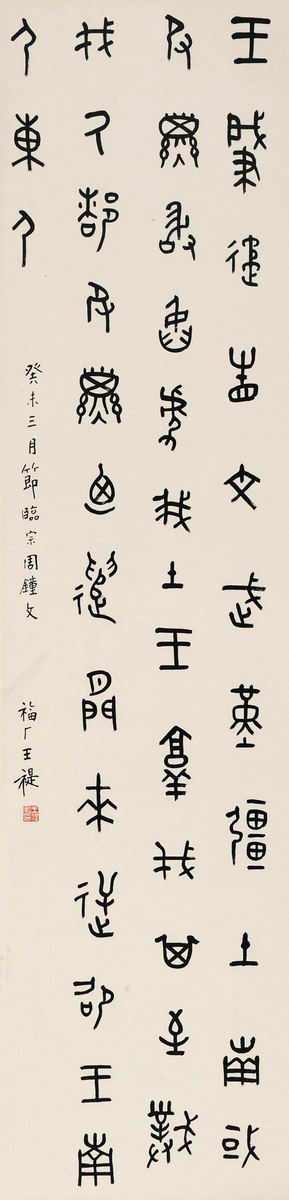 王肇遹省文武堇疆土南或
𠬝孳敢臽虐我土王𦎫伐其至𢧢
伐厥都𠬝孳廼遣閒來逆卲王南
尸東尸
癸未三月節臨宗周鐘文
福厂王禔